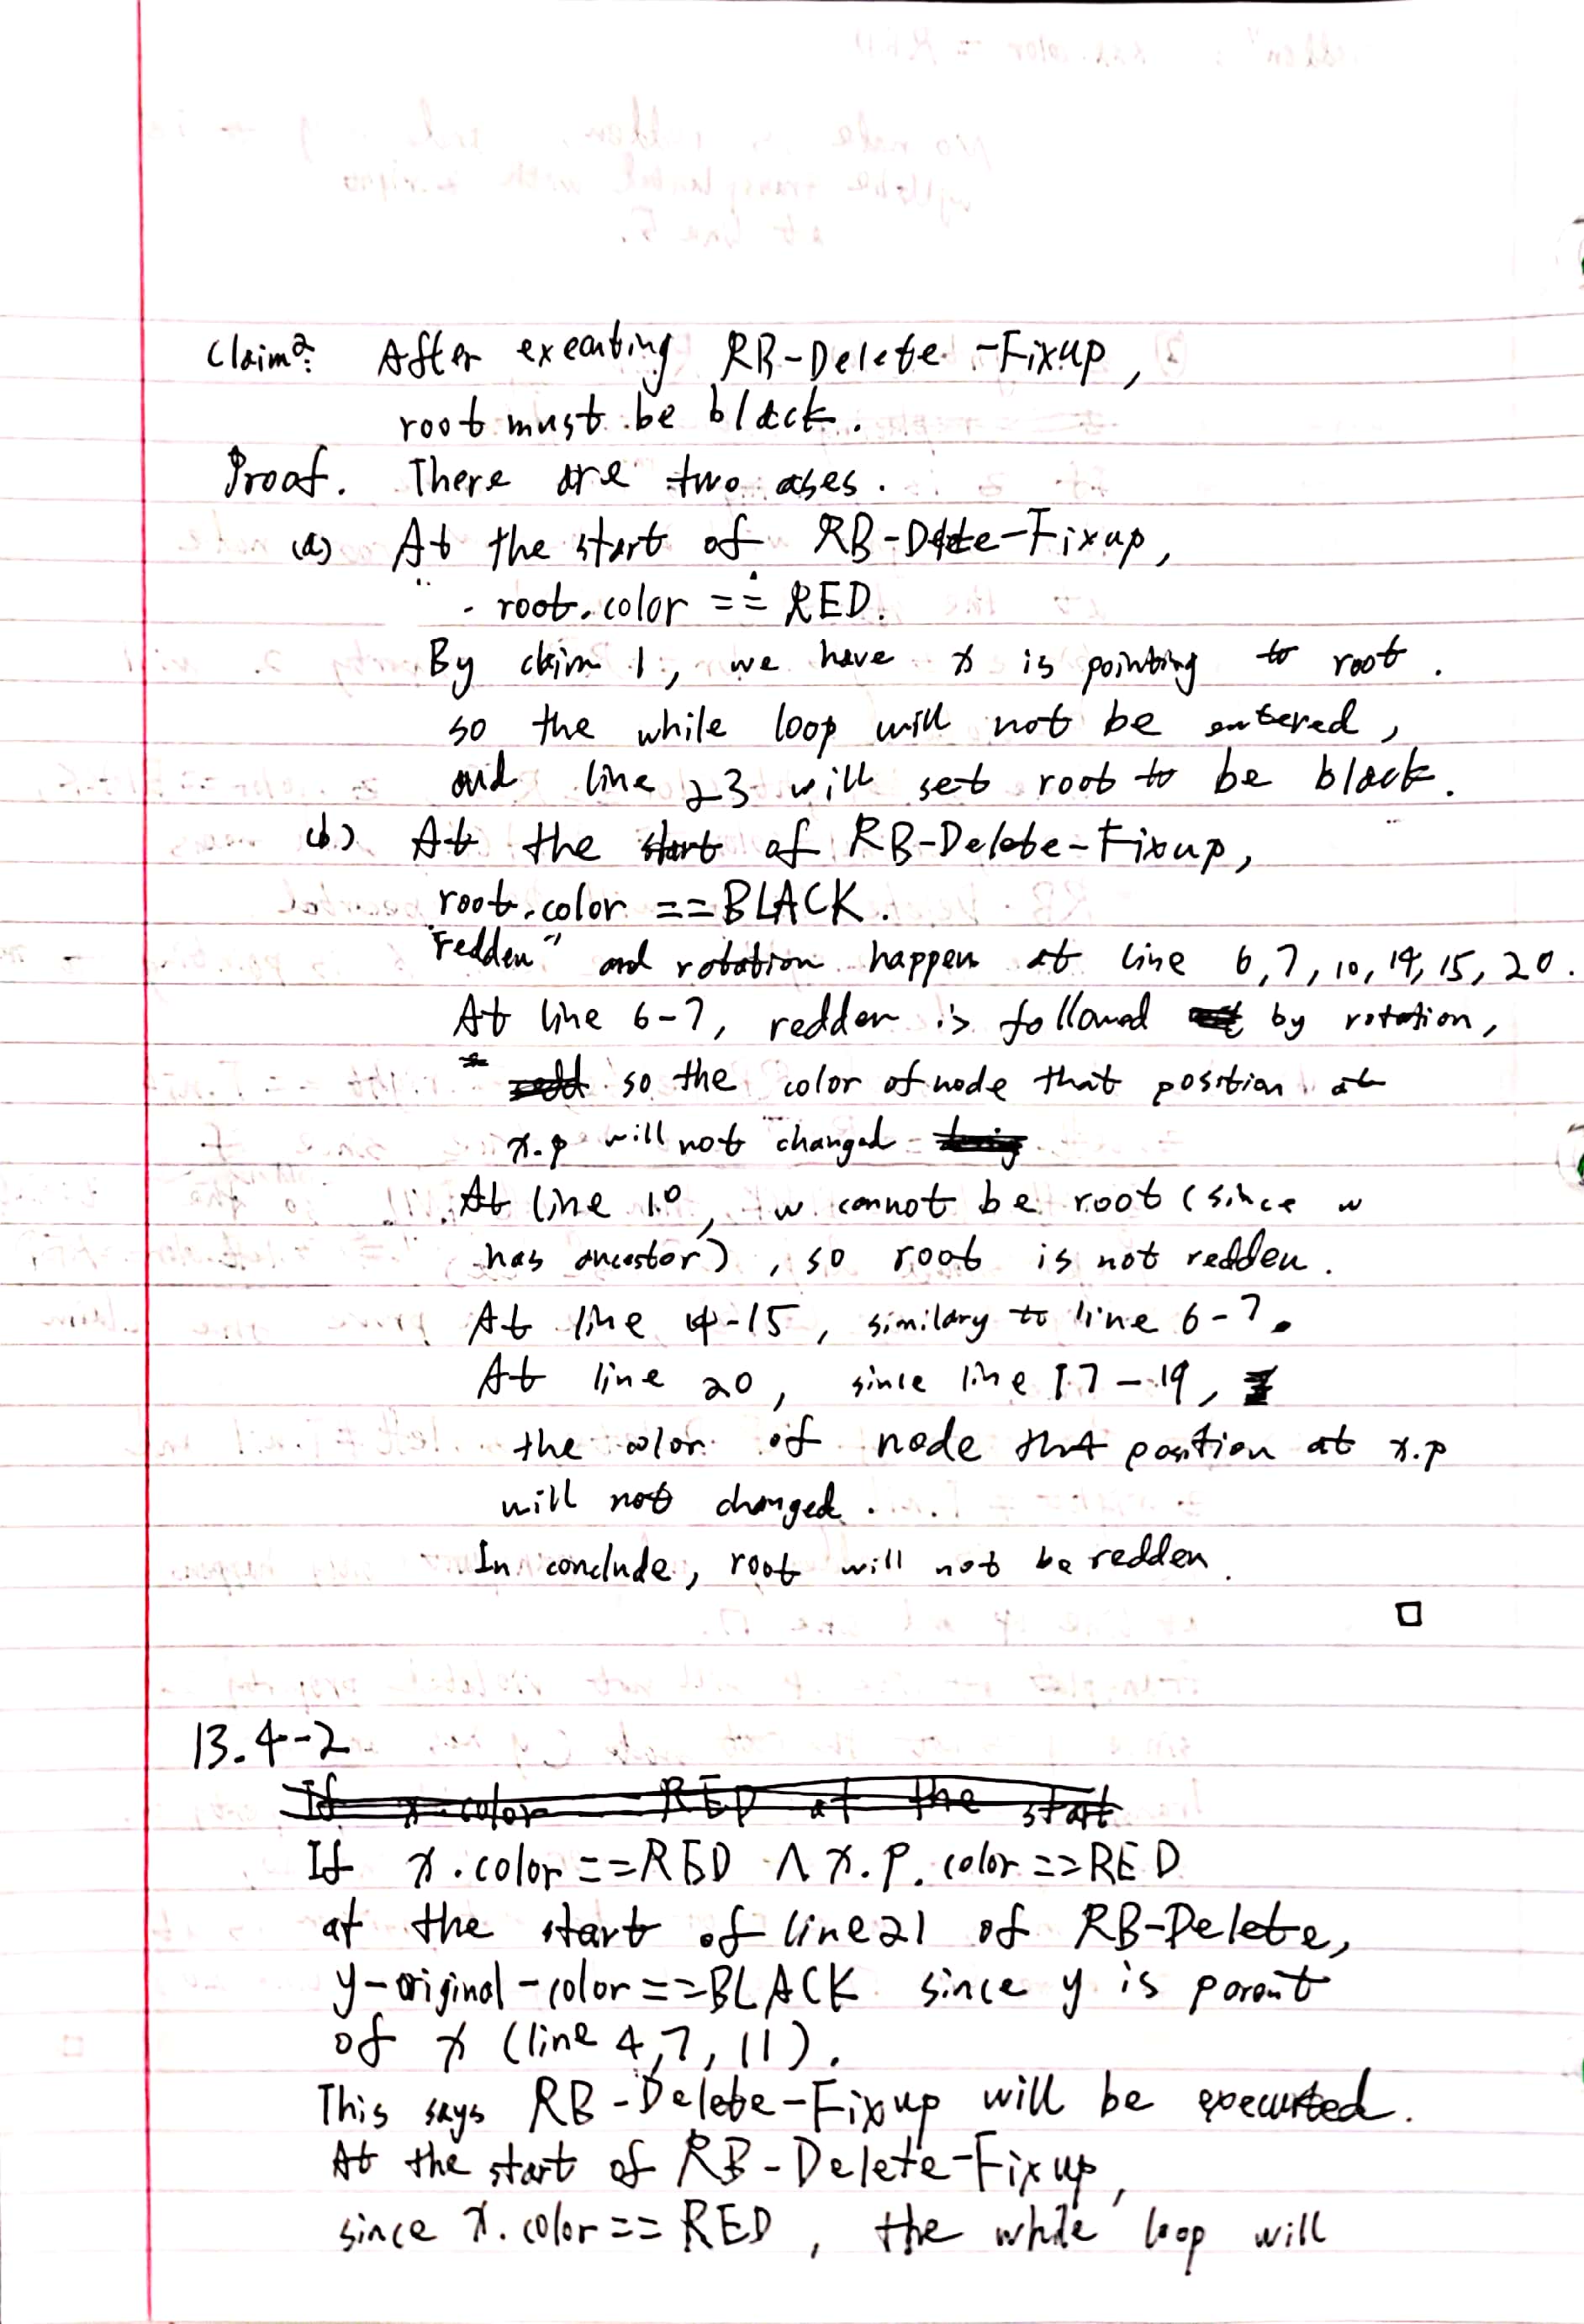 Claim2: After executing RB-Delete-Fixup,
root must be black.
Proof. There are two cases.
(a) At the start of RB-Delete-Fixup,
root.color == RED.
By claim 1, we have x is pointing to root.
so the while loop will not be entered,
and line 23 will set root to be black.
(b) At the start of RB-Delete-Fixup,
root.color == BLACK.
"redden" and rotation happen at line 6,7,10,14,15,20.
At line 6-7, redden is followed by rotation,
so the color of node that position at
x.p will not changed
At line 10, w cannot be root (since w
has ancestor), so root is not redden.
At line 14-15, similary to line 6-7.
At line 20, since line 17-19,
the color of node that position at x.p
will not changed.
In conclude, root will not be redden.
□
13.4-2
If x.color == RED ∧ x.p.color == RED
at the start of line 21 of RB-Delete,
y-original-color == BLACK since y is parent
of x (line 4,7,11).
This says RB-Delete-Fixup will be executed.
At the start of RB-Delete-Fixup,
since x.color == RED, the while loop will